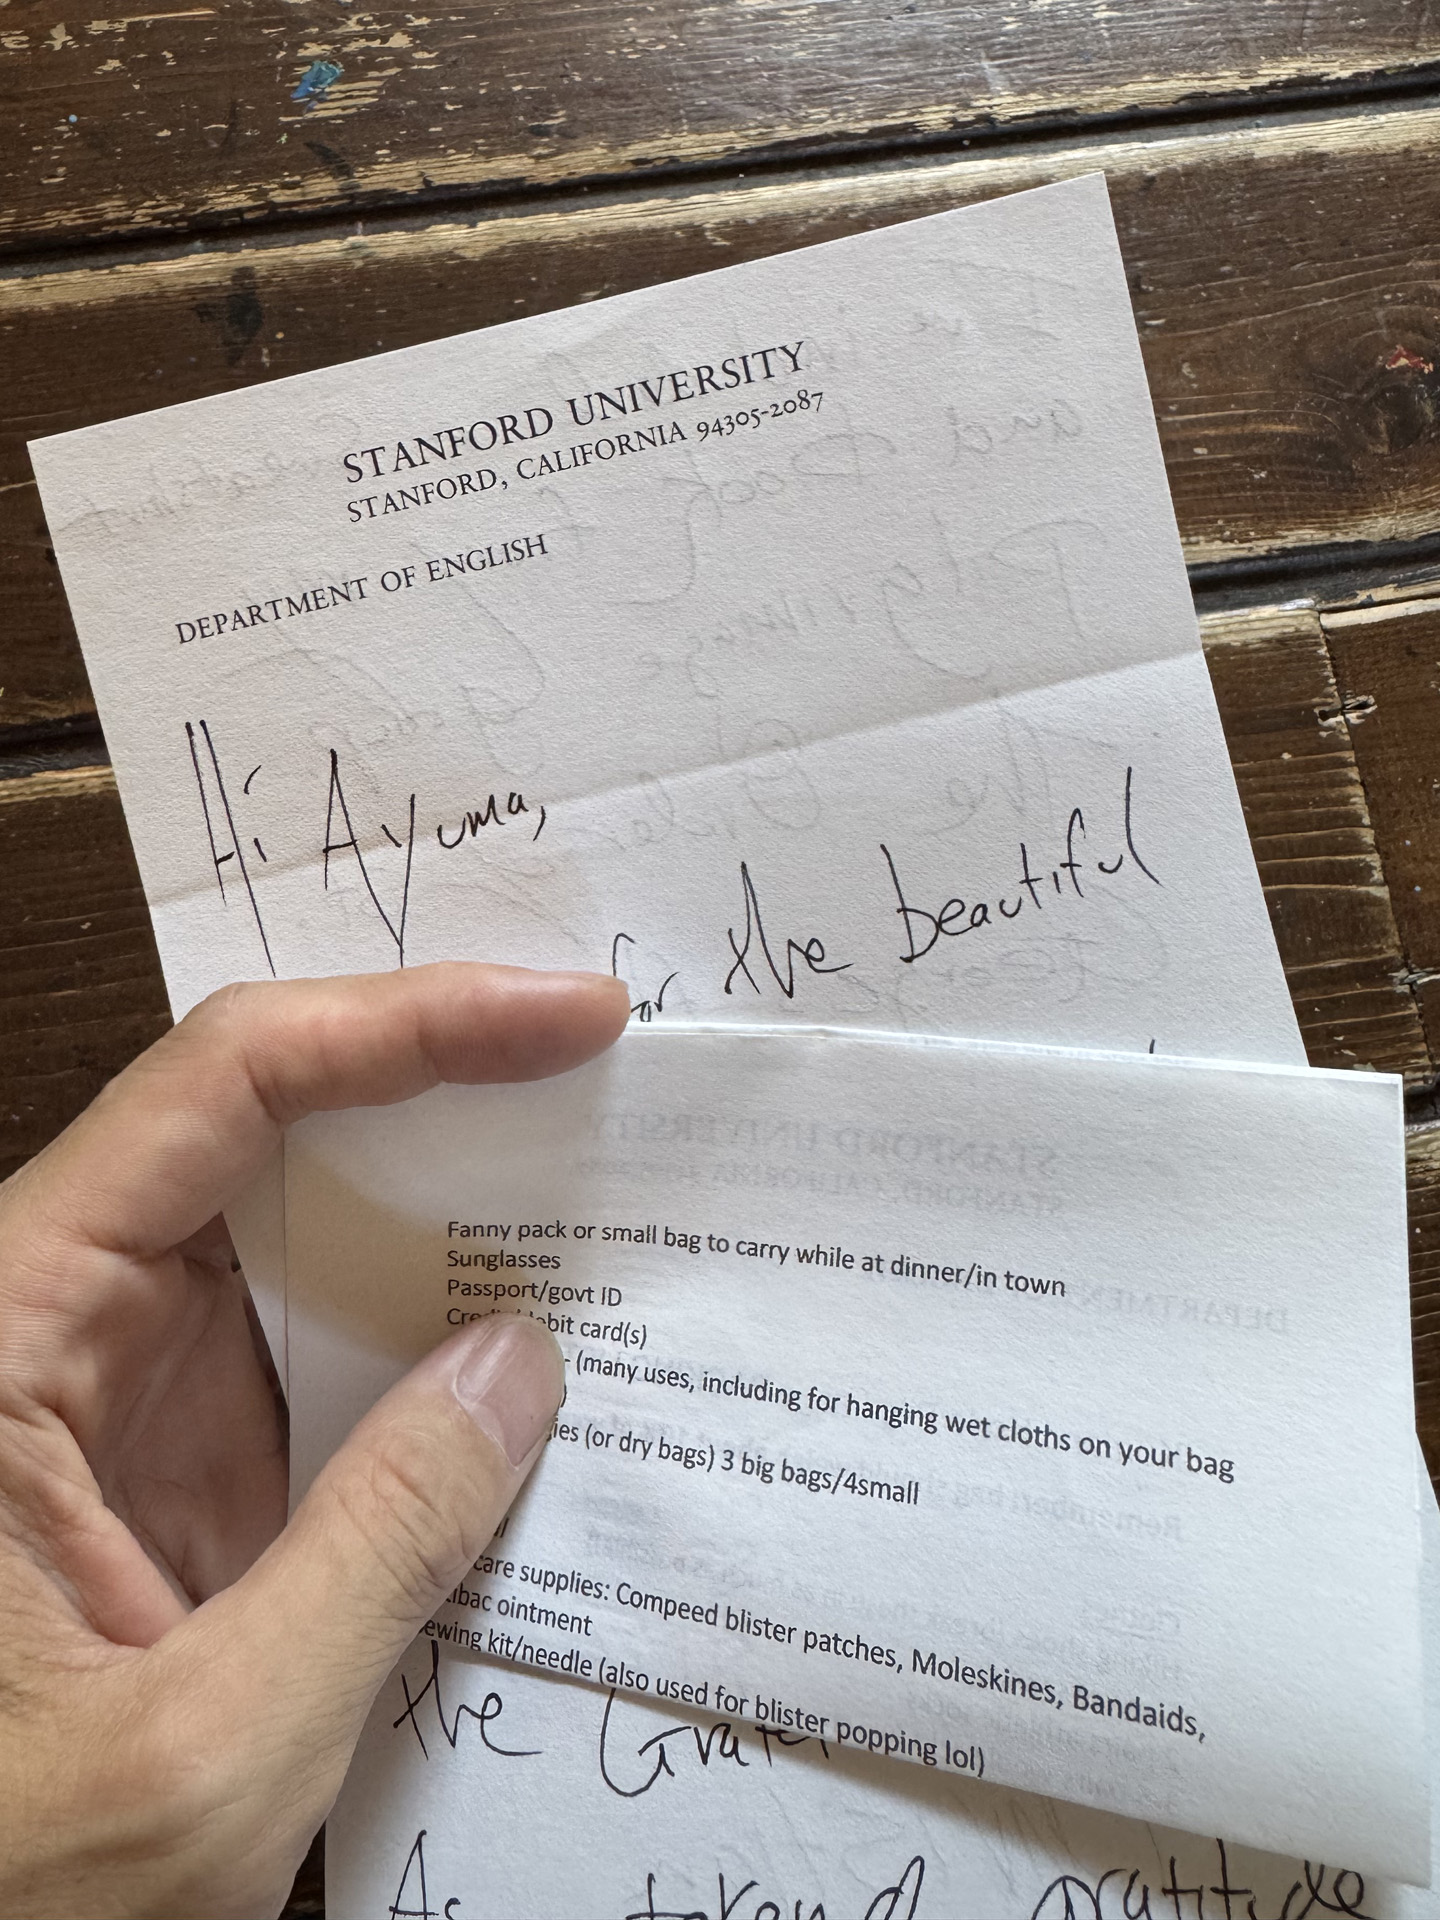 STANFORD UNIVERSITY
STANFORD, CALIFORNIA 94305-2087
DEPARTMENT OF ENGLISH
Hi Ayuma,
for the beautiful
Fanny pack or small bag to carry while at dinner/in town
Sunglasses
Passport/govt ID
card(s)
(many uses, including for hanging wet cloths on your bag
(or dry bags) 3 big bags/4small
care supplies: Compeed blister patches, Moleskines, Bandaids,
ointment
kit/needle (also used for blister popping lol)
the
As gratitude